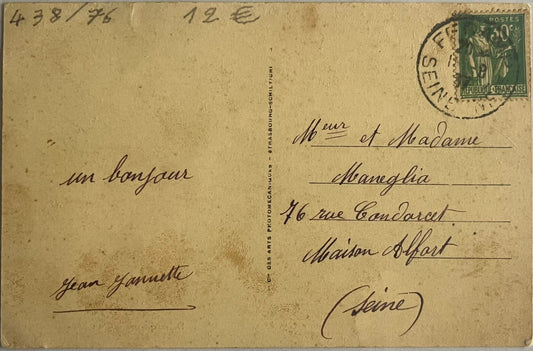 438/76 12 €
un bonjour
Jean Jannette
Cie DES ARTS PHOTOMECANIQUES - STRASBOURG-SCHILTIGHI
POSTES
REPUBLIQUE FRANÇAISE
SEINE
Meur et Madame
Maneglia
76 rue Condorcet
Maison Alfort
(Seine)